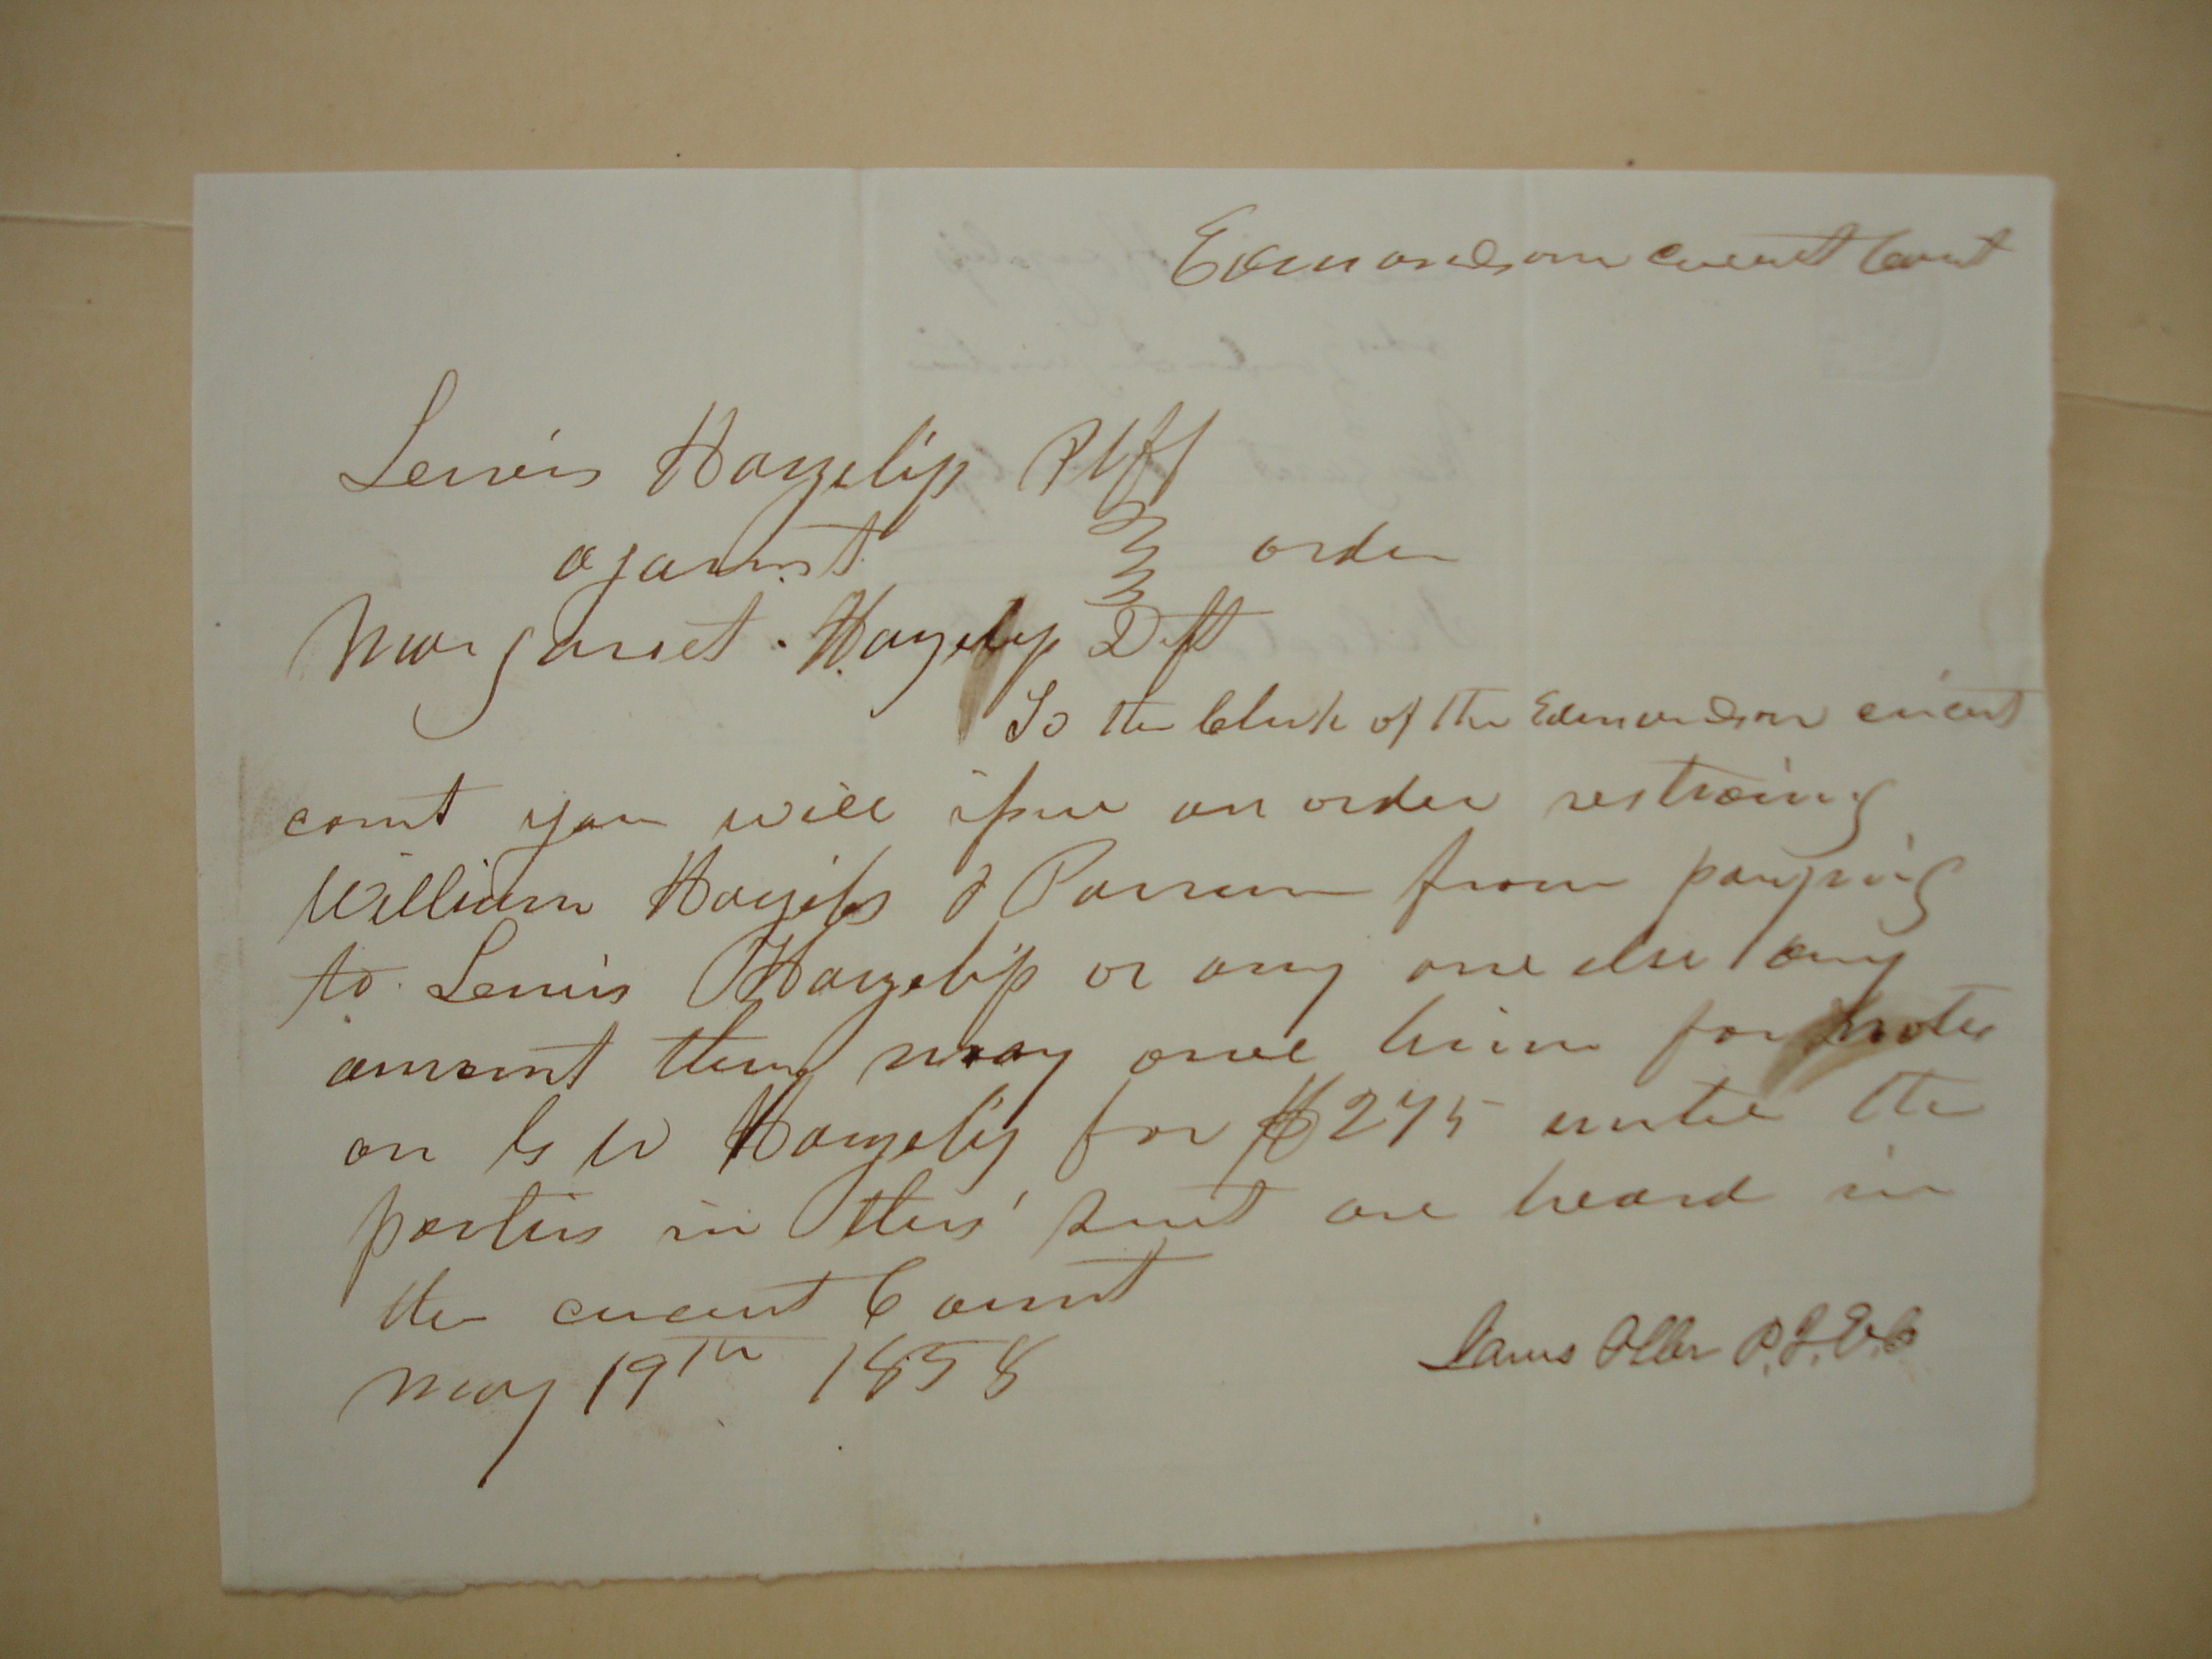 Edmondson circuit Court
Lewis Hazelip Plff
against order
Margaret Hazelip Deft
To the Clerk of the Edmondson circuit
court you will issue an order restraing
William Hazelip & Parsun from paying
to Lewis Hazelip or any one else any
amount they may owe him for notes
on G W Hazelip for $275 until the
parties in this suit are heard in
the circuit Court
May 19th 1858
P.J.E.C